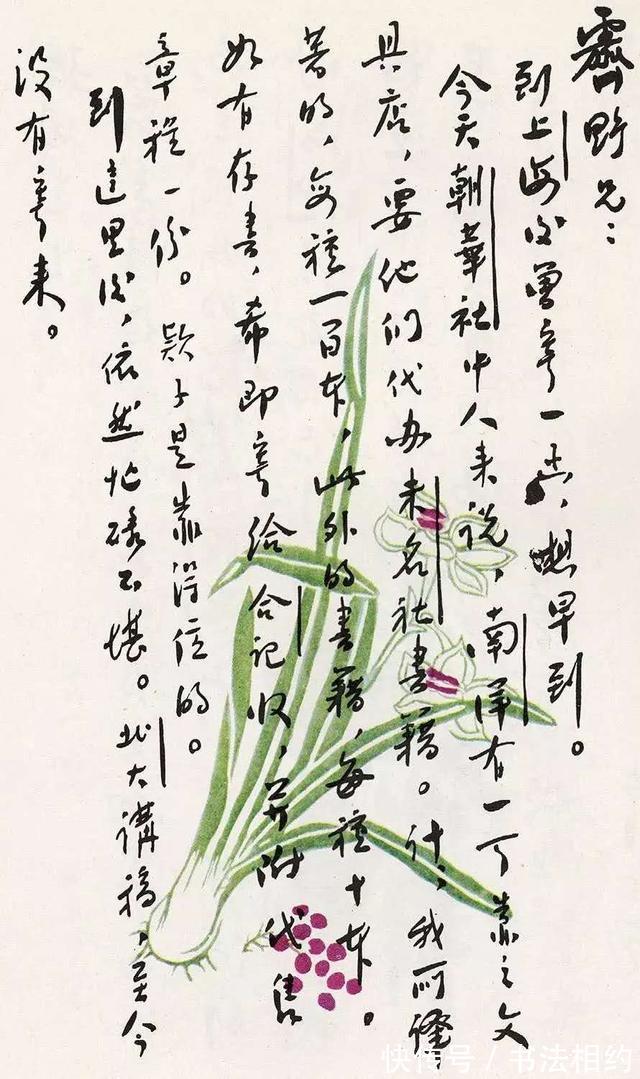 霽野兄：
到上海後曾寄一函，想早到。
今天朝華社中人来説，南洋有一可靠之文
具店，要他们代办未名社書籍。計，我所譯
著的，每種一百本，此外的書籍，每種十本。
如有存書，希即寄给合记收，并附代售
章程一份。款子是靠得住的。
到這里後，依然忙碌不堪。北大講稿，至今
没有寄来。
快传号 / 书法相约